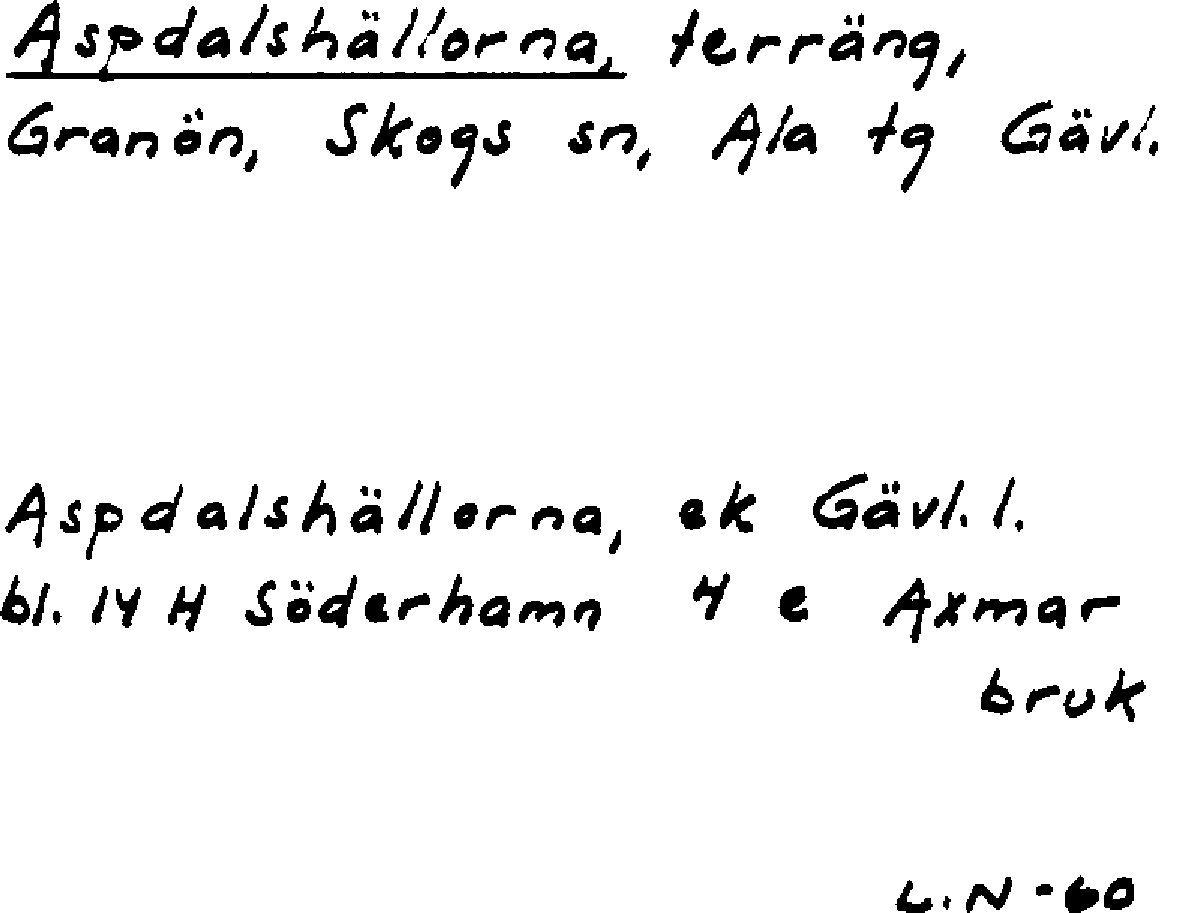 Aspdalshällorna, terräng,
Granön, Skogs sn, Ala tg Gävl.
Aspdalshällorna, ek Gävl. l.
bl. 14 H Söderhamn 4 e Axmar
bruk
L. N - 60